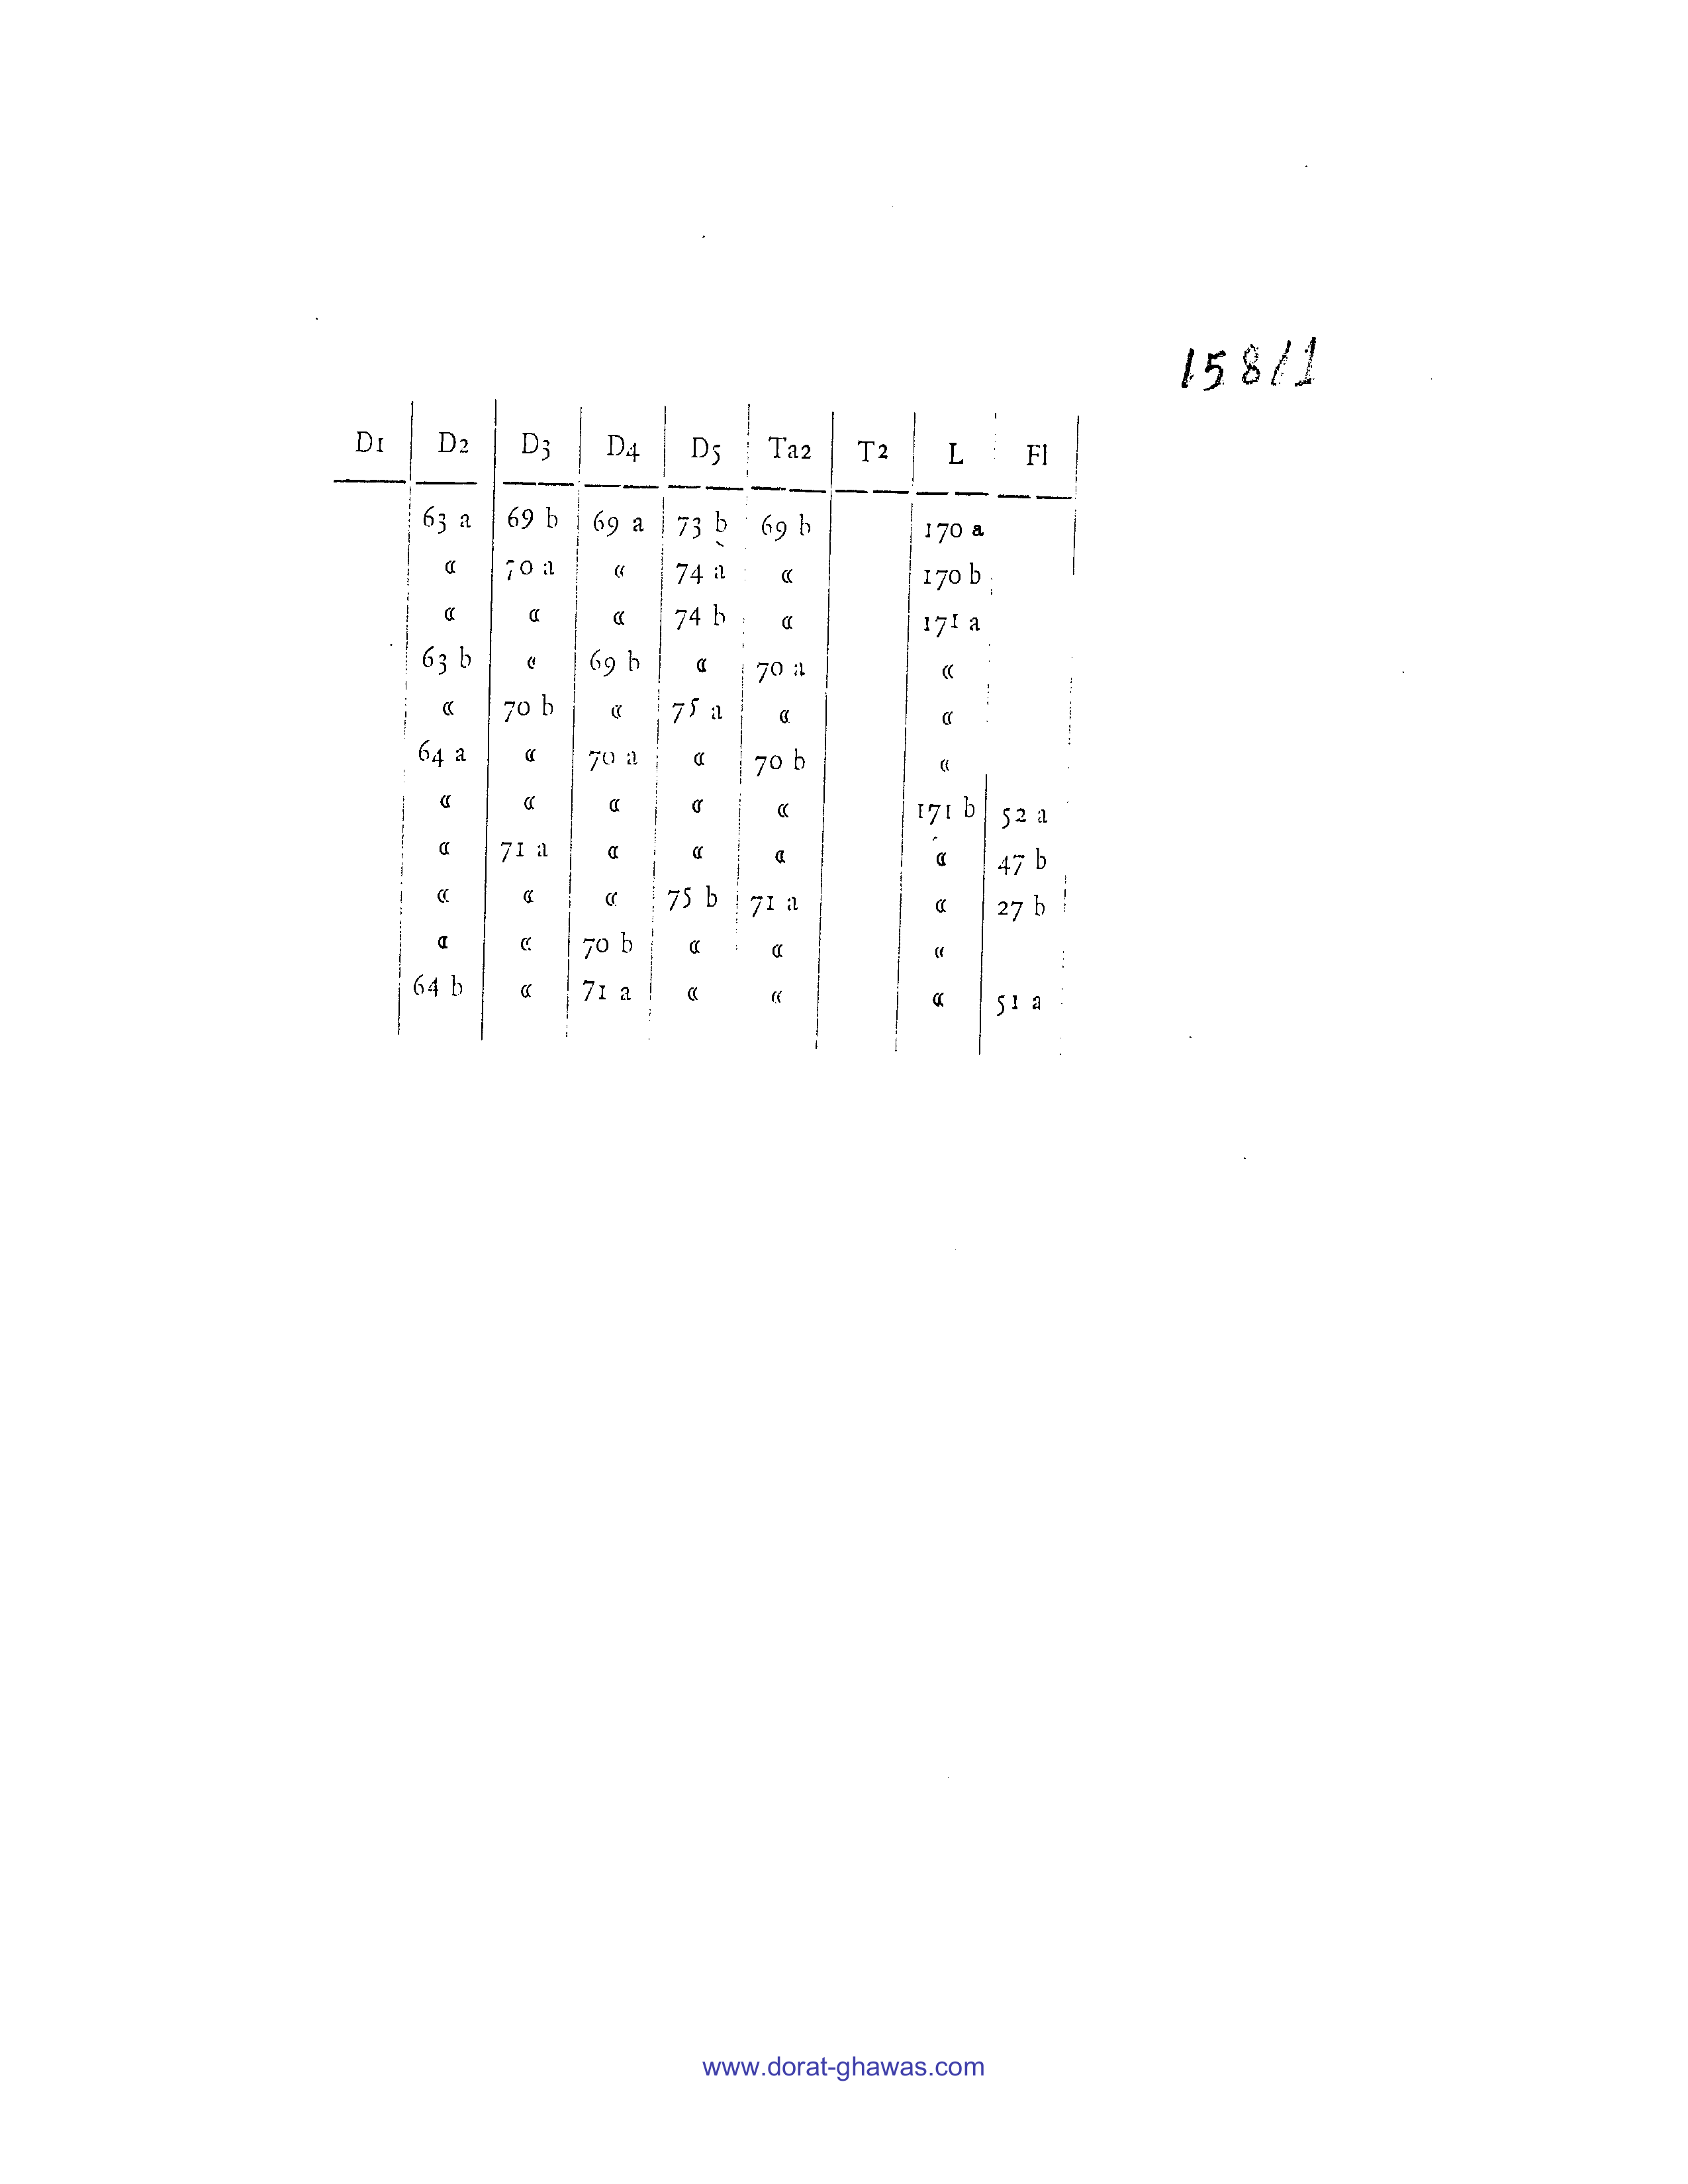 158/1
D1 D2 D3 D4 D5 Ta2 T2 L Fl
63 a 69 b 69 a 73 b 69 b 170 a
« 70 a « 74 a « 170 b
« « « 74 b « 171 a
63 b « 69 b « 70 a «
« 70 b « 75 a « «
64 a « 70 a « 70 b «
« « « « « 171 b 52 a
« 71 a « « « « 47 b
« « « 75 b 71 a « 27 b
« « 70 b « « «
64 b « 71 a « « « 51 a
www.dorat-ghawas.com